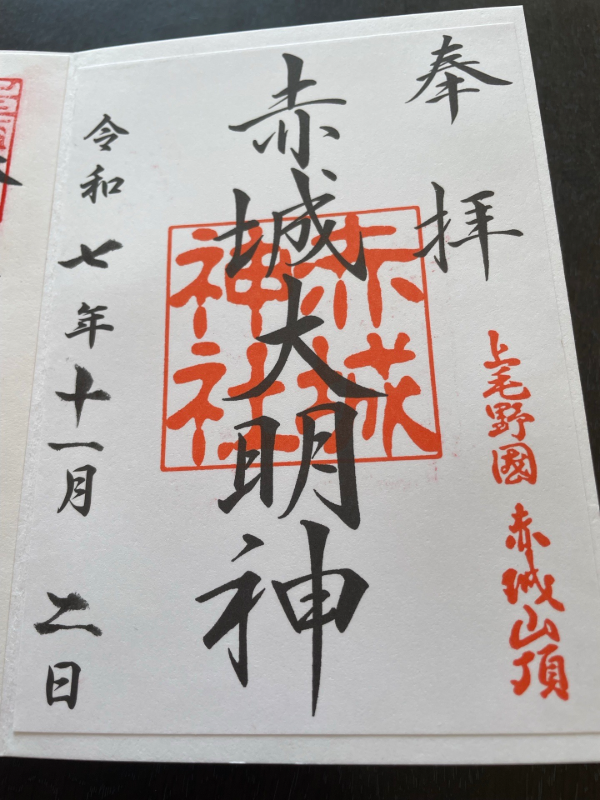 奉拝
上毛野國 赤城山頂
赤城大明神
赤城
神社
令和七年十一月 二日